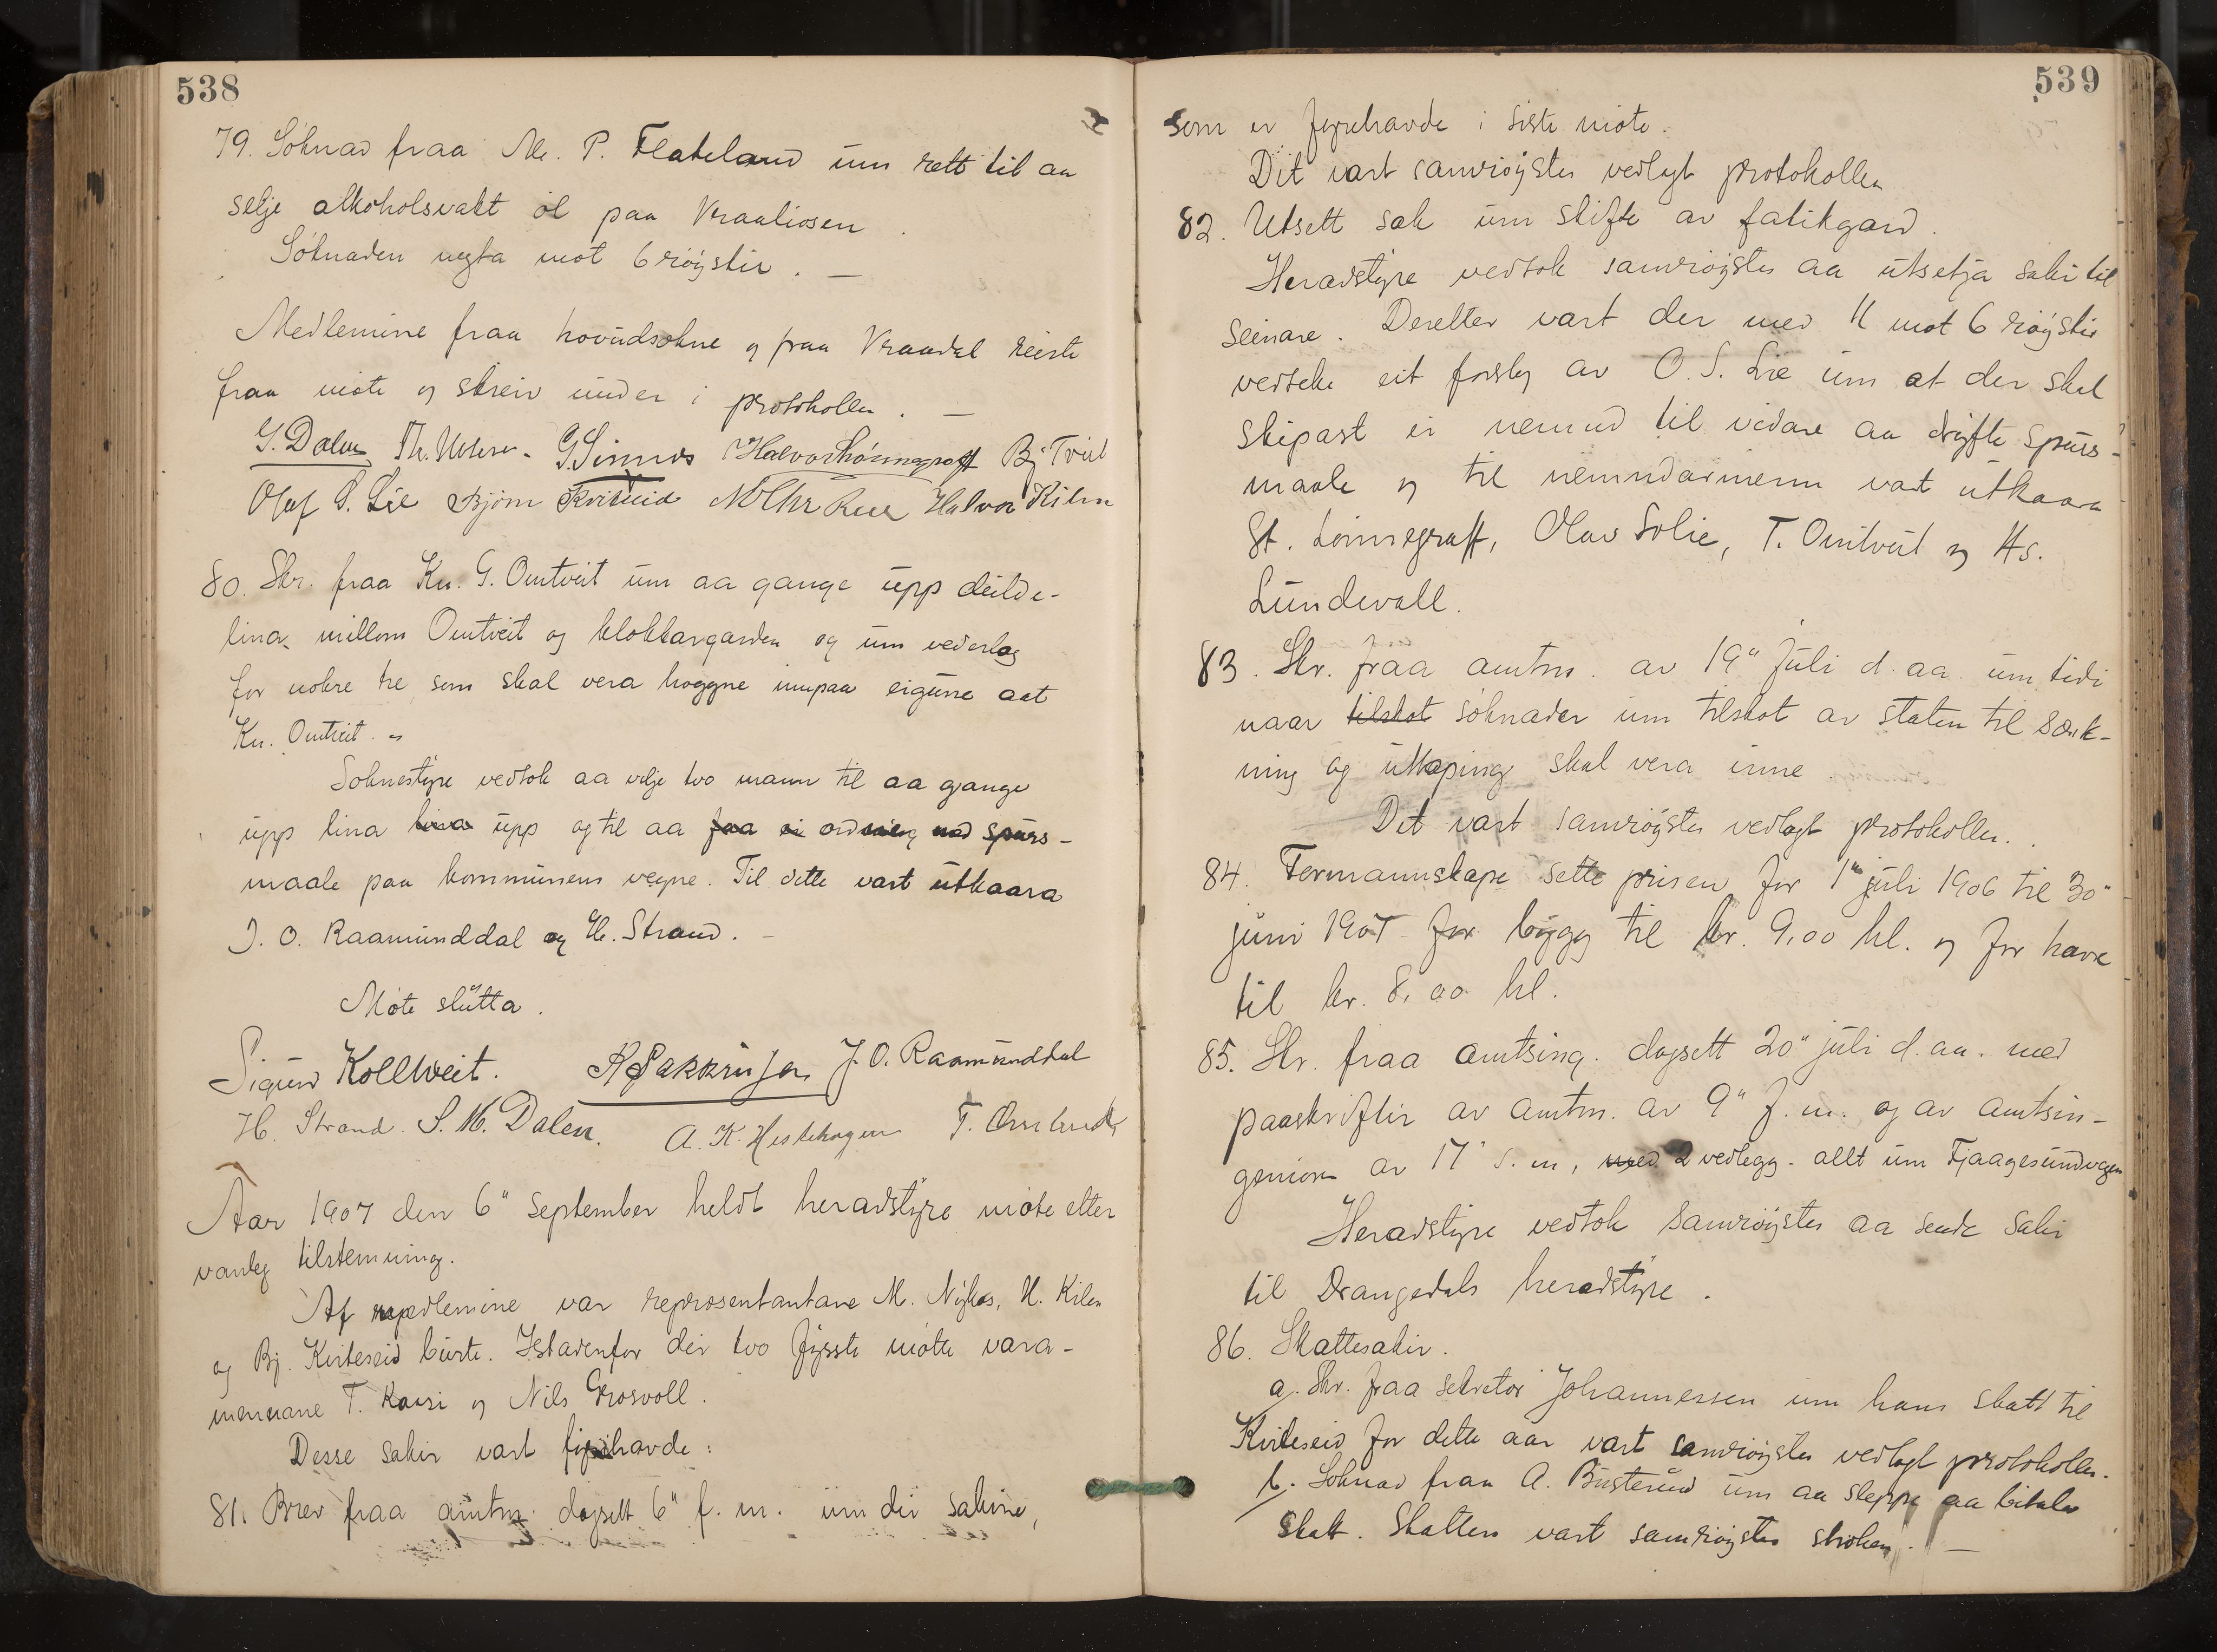 538
79. Søknad fraa M. P. Flateland um rett til aa
selje alkoholsvakt øl paa Vraaliosen.
Søknaden negta mot 6 røyster. —
Medlemine fraa hovudsokne og fraa Vraadal reiste
fraa møte og skreiv under i protokollen. —
G. Dalen G. Sinnes Halvor Lønnegraff Bj Tveit
Olaf S. Lie Bjørn Kviteseid Halvor Kilen
80. Skr. fraa Kn. G. Omtveit um aa gange upp deilde-
lina millom Omtveit og klokkargarden og um vederlag
for nokre tre som skal vera hoggne innpaa eigune aat
Kn. Omtveit. -
Soknestyre vedtok aa velje tvo mann til aa gange
upp lina lina upp og til aa faa ei ordning med spurs-
maale paa kommunens vegne. Til dette vart utkaara
J. O. Raamunddal og H. Strand. -
Møte slutta.
Sigurd Kollweit. J. O. Raamunddal
H. Strand. S. M. Dalen. A. K. Hestehagen T.
Aar 1907 den 6" september heldt heradstyre møte etter
vanleg tilstemning.
Af medlemine var representantane M. Nykos, H. Kilen
og Bj. Kviteseid burte. Istadenfor dei tvo fyrste møtte vara-
mennane T. Kaasi og Nils Grosvoll.
Desse saker vart fyrehavde:
81. Brev fraa amtm. dagsett 6" f. m. um dei sakine,
539
som er fyrehavde i siste møte.
Dit vart samrøystes vedlagt protokollen
82. Utsett sak um skifte av fatikgard.
Heradstyre vedtok samrøystes aa utsetja saki til
seinare. Deretter vart der med 11 mot 6 røyster
vedteke eit forslag av O. S. Lie um at der skal
skipast ei nemnd til vidare aa drøfte spurs-
maale og til nemndarmenn vart utkaara
St. Lønnegraff, Olav Solie, T. Omtveit og Hs.
Lundevall.
83. Skr. fraa amtm. av 19" juli d. aa. um tidi
naar tilskot søknader um tilskot av staten til sænk-
ning og utkaping skal vera inne.
Det vart samrøystes vedlagt protokollen.
84. Formannskape sette prisen for 1" juli 1906 til 30"
juni 1907 for bygg til kr. 9,00 hl. og for havre
til kr. 8,00 hl.
85. Skr. fraa amtsing. dagsett 20" juli d. aa. med
paaskrifter av amtm. av 9" f. m. og av amtsin-
geniøren av 17" s. m., med 2 vedlegg - allt um Fjaagesundvegen
Heradstyre vedtok samrøystes aa sende saki
til Drangedals heradstyre.
86. Skattesaker.
a. Skr. fraa sekretær Johannessen um hans skatt til
Kviteseid for dette aar vart samrøystes vedlagt protokollen.
b. Søknad fraa A. Busterud um aa sleppe aa betale
skatt. Skatten vart samrøystes strøken. —